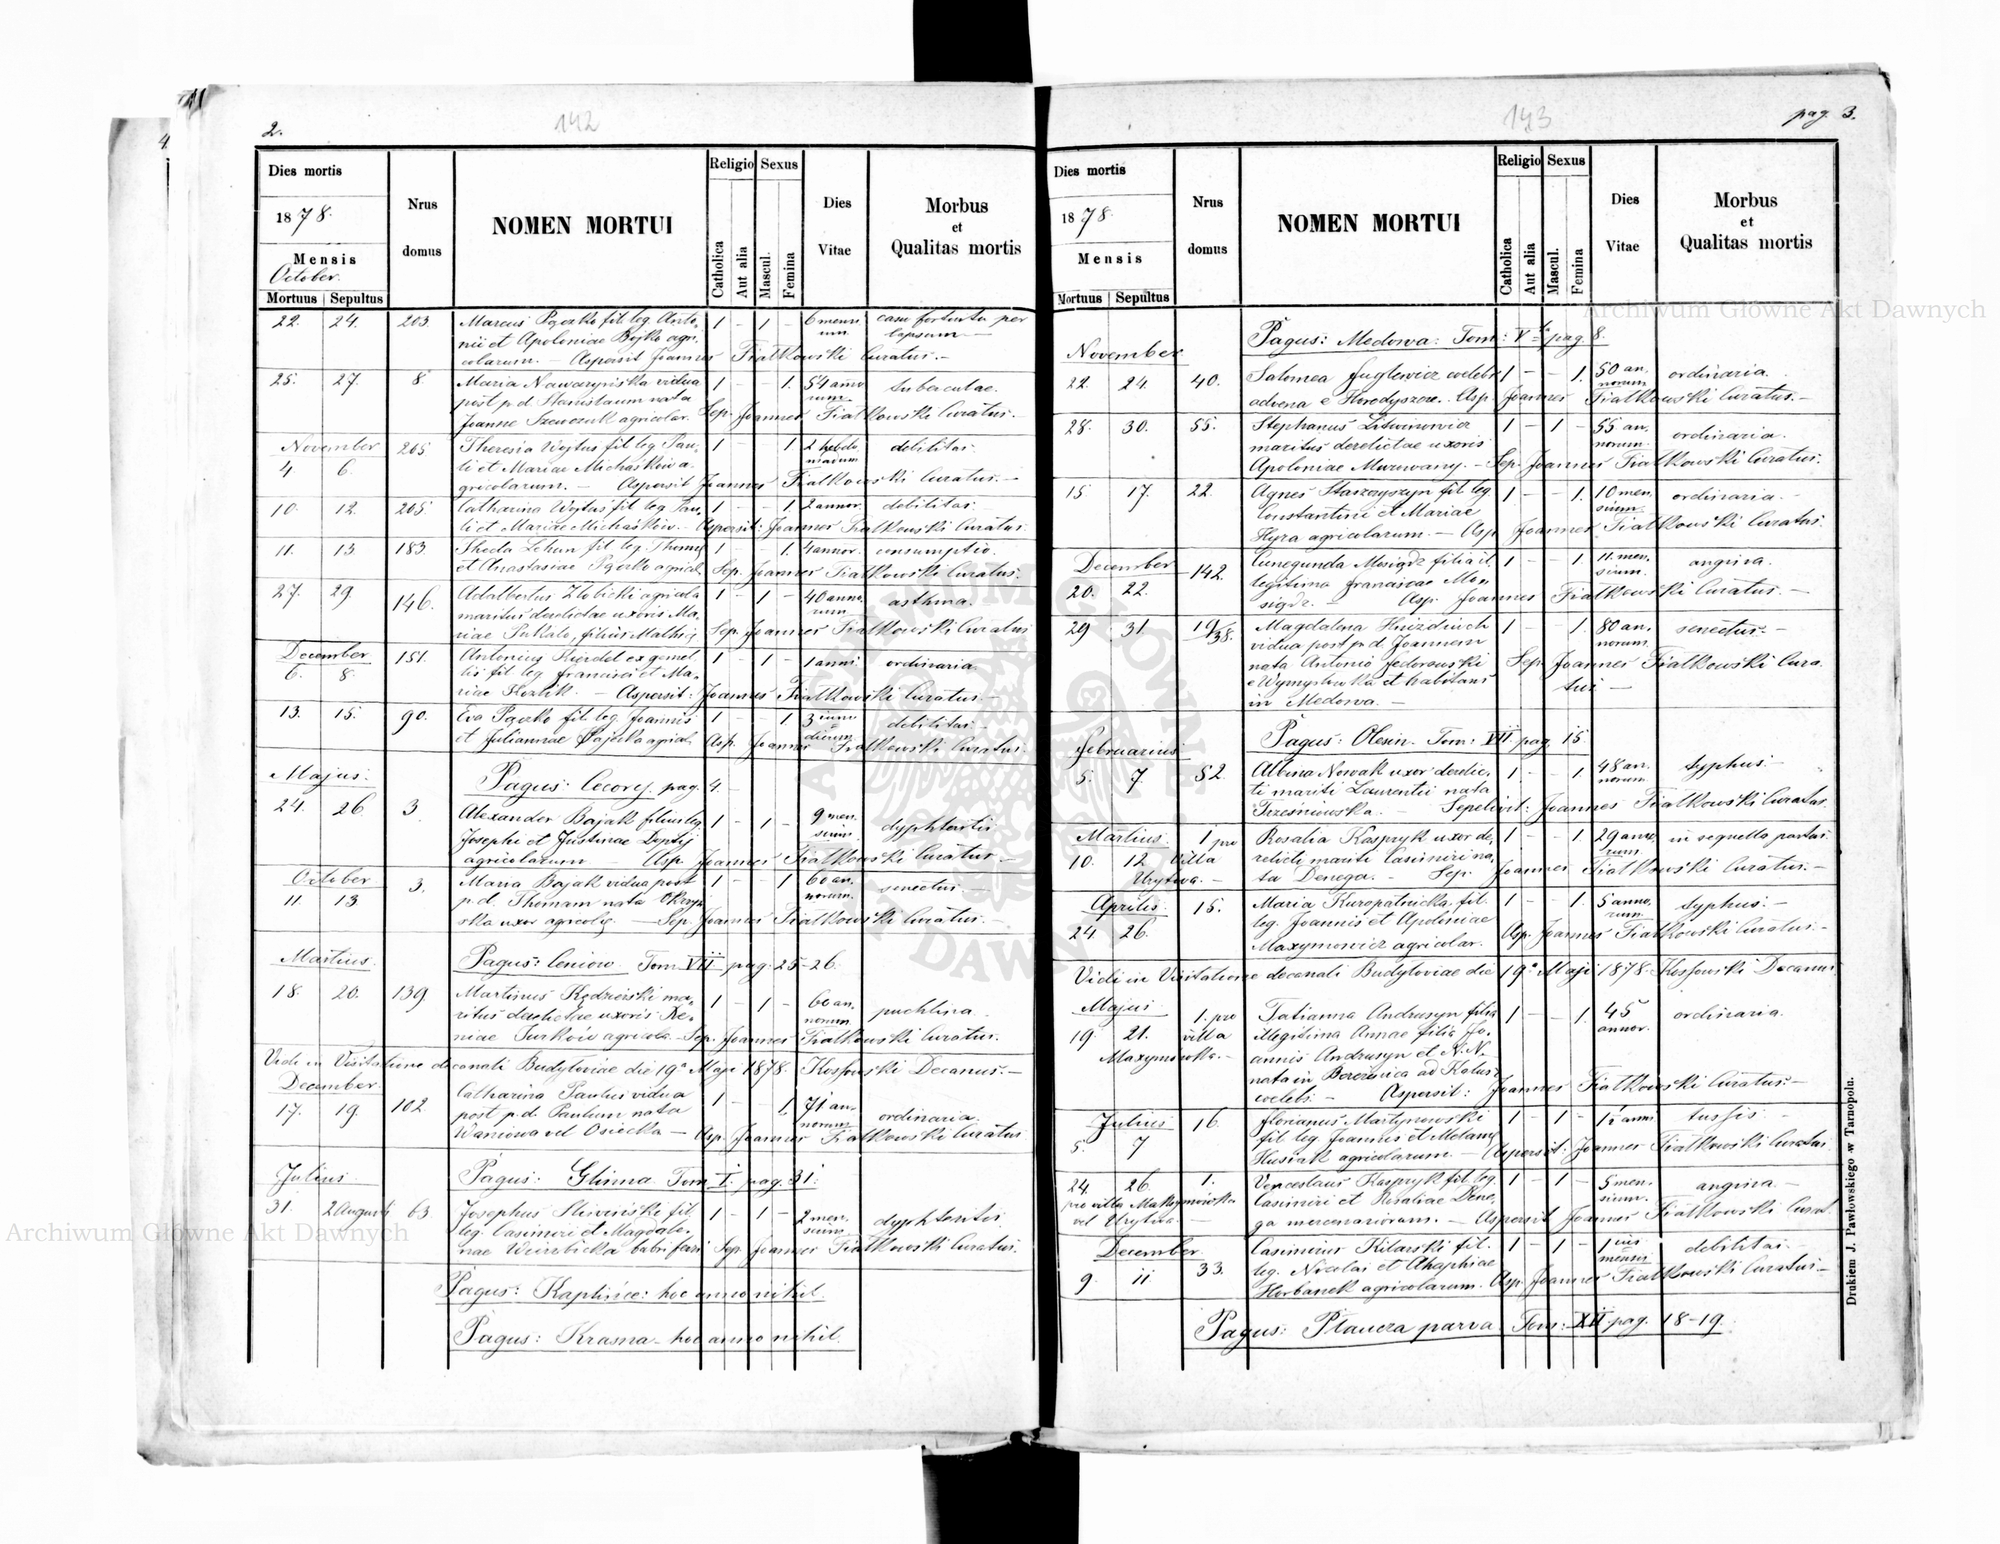 2.
142
Dies mortis
1878.
Mensis
October.
Mortuus | Sepultus
Nrus
domus
NOMEN MORTUI
Religio
Sexus
Catholica
Aut alia
Mascul.
Femina
Dies
Vitae
Morbus
et
Qualitas mortis
22. 24. 203. Marcus fil. leg. Anto- 1 - 1 - 6 mensi casu fortuitu per
nii et Apoloniae Bojko agri- um. lapsum —
colarum. — Aspersit Joannes Fiałkowski Curatus. —
25. 27. 8. Maria Nawarzyńska vidua 1 - - 1. 54 anno tuberculae.
post p.d. Stanislaum nata rum.
Joanne Szewczuk agricolar. Sep. Joannes Fiałkowski Curatus. —
November 205 Theresia Wojtus fil leg Pau- 1 - 1. 2 hebdo- debilitas.
4. 6. li et Mariae Michałków a- madum
gricolarum. — Aspersit Joannes Fiałkowski Curatus. —
10. 12. 205. Catharina Wojtus fil leg Pau- 1 - - 1 2 annor. debilitas.
li et Mariae Michałków. — Aspersit: Joannes Fiałkowski Curatus.
11. 13. 183. fil. leg. Thomae 1 - - 1. 4 annor. consumptio.
et Anastasiae agricol. Sep. Joannes Fiałkowski Curatus.
27. 29. 146. Adalbertus Złobicki agricola 1 - 1 - 40 anno- asthma.
maritus derelictae uxoris Ma- rum
riae Pukało, filius Mathię Sep. Joannes Fiałkowski Curatus
December 151. Antonius ex gemel- 1 - 1 - 1 anni ordinaria
6. 8. lis fil leg Francisci et Ma-
riae — Aspersit: Joannes Fiałkowski Curatus. —
13. 15. 90. Eva fil. leg. Joannis 1 - - 1 3
et Juliannae agricol. Asp. Joannes dierum debilitas —
Fiałkowski Curatus.
Majus. Pagus: Cecory. pag. 4. —
24. 26. 3. Alexander Bajak filius leg 1 - 1 - 9 men- dyphteritis
Josephi et Justinae sium.
agricolarum — Asp. Joannes Fiałkowski Curatus. —
October 3. Maria Bajak vidua post 1 - - 1 60 an- senectus. —
11 13 p.d. Thomam nata norum.
ska uxor agricolę — Sep. Joannes Fiałkowski Curatus. —
Martius. Pagus: Ceniow. Tom VII pag. 25-26.
18. 20. 139. Martinus Kędzierski ma- 1 - 1 - 60 an- puchlina.
ritus derelictae uxoris Xe- norum
niae Turków agricola. Sep. Joannes Fiałkowski Curatus.
Vidi in Visitatione decanali Budyloviae die 19a Maji 1878. Kossowski Decanus. —
December. Catharina Paulus vidua 1 - - 1 71 an- ordinaria.
17. 19. 102. post p.d. Paulum nata norum
Waniowa vel Osiecka — Asp. Joannes Fiałkowski Curatus.
Julius. Pagus: Glinna Tom I. pag. 31.
31. 2 Augusti 63. Josephus fil 1 - 1 - 2 men- dyphteritis.
leg. Casimiri et Magdale- sium.
nae Wierzbicka fabri ferri Sep. Joannes Fiałkowski Curatus.
Pagus: Kaplińce: hoc anno nihil.
Pagus: Krasna — hoc anno nihil.
143
pag. 3.
Dies mortis
1878.
Mensis
Mortuus | Sepultus
Nrus
domus
NOMEN MORTUI
Religio
Sexus
Catholica
Aut alia
Mascul.
Femina
Dies
Vitae
Morbus
et
Qualitas mortis
Pagus: Medowa: Tom: V pag 8.
November
22. 24. 40. Salomea Juglewicz coelebs 1 - - 1. 50 an- ordinaria.
advena e Horodyszcze. Asp. Joannes norum Fiałkowski Curatus. —
28. 30. 55. Stephanus Litwinowicz 1 - 1 - 55 an- ordinaria.
maritus derelictae uxoris norum.
Apoloniae Murowany. — Sep. Joannes Fiałkowski Curatus.
15 17. 22. Agnes Starzyszyn fil leg. 1 - - 1. 10 men- ordinaria. —
Constantini et Mariae sium.
Hyra agricolarum. — Asp. Joannes Fiałkowski Curatus.
December 142. Cunegunda filia il- 1 - - 1. 11. men- angina.
20. 22. legitima Franciscae sium.
— Asp. Joannes Fiałkowski Curatus. —
29 31. 19/38. Magdalena Hnizdiuch 1 - - 1. 80 an- senectus —
vidua post p.d. Joannem norum.
nata Antonio Fedorowski Sep. Joannes Fiałkowski Cura-
e Wymysłówka et habitans tus —
in Medowa. —
Pagus: Olesin. Tom: VII pag. 15.
Februarius
5. 7. 52. Albina Nowak uxor derelic- 1 - - 1. 48 an- typhus. —
ti mariti Laurentii nata norum.
Trześniowska. — Sepelivit: Joannes Fiałkowski Curatus.
Martius. 1 pro Rosalia Kasprzyk uxor de- 1 - - 1. 29 anno- in sequella partus.
10. 12 villa relicti mariti Casimiri na- rum.
Urytwa. — ta Denega. — Sep. Joannes Fiałkowski Curatus. —
Aprilis. 15. Maria Kuropatnicka fil. 1 - - 1. 5 anno- typhus. —
24. 26. leg. Joannis et Apoloniae rum.
Maxymowicz agricolar. Asp. Joannes Fiałkowski Curatus. —
Vidi in Visitatione decanali Budyloviae die 19a Maji 1878. Kossowski Decanus.
Majus 1. pro Tatianna Andrusyn filia 1 - - 1. 45 ordinaria.
19. 21. villa illegitima Annae filia Jo- annor.
Maxymówka. — annis Andrusyn et N.N.
nata in Berezowica ad Kalusz
coelebs — Aspersit: Joannes Fiałkowski Curatus. —
Julius 16. Florianus Martynowski 1 - 1 - 1½ anni tussis. —
5. 7 fil leg Joannis et Melanię
Husiak agricolarum. — Aspersit: Joannes Fiałkowski Curatus.
24. 26. 1. Venceslaus Kasprzyk fil leg. 1 - 1 - 5 men- angina. —
pro villa Maksymówka Casimiri et Rosaliae Dene- sium.
vel Urytwa. — ga mercenariorum. — Aspersit Joannes Fiałkowski Curat.
December Casimirus Kilarski fil. 1 - 1 - 1 ius debilitas. —
9. 11. 33. leg. Nicolai et Ahaphiae mensis
Horbanek agricolarum. Asp. Joannes Fiałkowski Curatus. —
Pagus: Płaucza parva. Tom: XII pag. 18-19.
Drukiem J. Pawłowskiego w Tarnopolu.
Archiwum Główne Akt Dawnych
Archiwum Główne Akt Dawnych
ARCHIWUM GŁÓWNE
AKT DAWNYCH